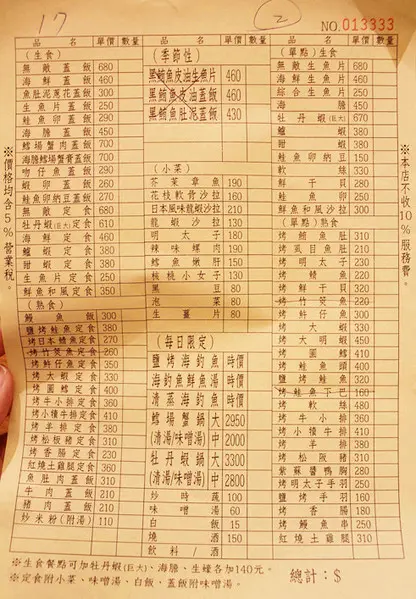 17
2
NO.013333
品名 單價 數量
(生食)
無敵蓋飯 680
海鮮蓋飯 460
魚肚泥蔥花蓋飯 300
生魚片蓋飯 250
鮭魚卵蓋飯 290
海膽蓋飯 450
鱈場蟹肉蓋飯 700
海膽鱈場蟹膏蓋飯 700
吻仔魚蓋飯 290
蝦卵蓋飯 260
鮭魚卵納豆蓋飯 270
無敵定食 680
牡丹蝦(巨大)定食 610
海鮮定食 460
鱆蝦定食 380
甜蝦定食 380
生魚片定食 250
鮮魚和風定食 350
(熟食)
鰻魚飯 300
鹽烤鮭魚定食 380
烤日本鯖魚定食 270
烤竹筴魚定食 260
烤鮮仔魚定食 350
烤大蝦定食 330
烤圓鱈定食 400
烤牛小排定食 360
烤小犢牛排定食 410
烤羊排定食 380
烤松板豬定食 310
烤香腸定食 230
紅燒土雞腿定食 360
魚肚肉蓋飯 310
牛肉蓋飯 210
豬肉蓋飯 210
炒米粉(附湯) 110
品名 單價 數量
(季節性)
黑鮪魚皮油生魚片 460
黑鮪魚皮油蓋飯 460
黑鮪魚肚泥蓋飯 430
(小菜)
芥茉章魚 190
花枝軟骨沙拉 160
日本風味龍蝦沙拉 210
龍蝦沙拉 130
明太子 180
辣味螺肉 190
鱈魚燉肝 150
核桃小女子 130
黑豆 80
泡菜 80
生薑片 80
(每日限定)
鹽烤海釣魚 時價
海釣魚鮮魚湯 時價
清蒸海釣魚 時價
鱈場蟹鍋 大 2950
(清湯/味噌湯) 中 2000
牡丹蝦鍋 大 3300
(清湯/味噌湯) 中 2800
炒時蔬 100
味噌湯 60
白飯 15
燒酒 150
飲料/酒
品名 單價 數量
(單點)生食
無敵生魚片 680
海鮮生魚片 460
綜合生魚片 250
海膽 450
牡丹蝦(巨大) 670
鱆蝦 380
甜蝦 380
鮭魚卵納豆 150
軟絲 330
鮮干貝 280
鮭魚卵 250
鮮魚和風沙拉 310
(單點)熟食
烤鮪魚肚 310
烤虱目魚肚 210
烤明太子 230
烤鯖魚 220
烤鮮干貝 320
烤竹筴魚 220
烤鮮仔魚 300
烤大蝦 330
烤大明蝦 450
烤圓鱈 410
烤鮭魚頭 400
鹽烤鮭魚 320
烤鮭魚下巴 160
烤軟絲 480
烤牛小排 360
烤小犢牛排 410
烤羊排 380
烤松阪豬 310
紫蘇醬鴨胸 280
烤明太子手羽 250
鹽烤手羽 160
烤香腸 180
烤鰻魚串 250
紅燒土雞腿 310
※價格均含5%營業稅。
※本店不收10%服務費。
※生食餐點可加牡丹蝦(巨大)、海膽、生蠔各加140元。
※定食附小菜、味噌湯、白飯、蓋飯附味噌湯。
總計:$